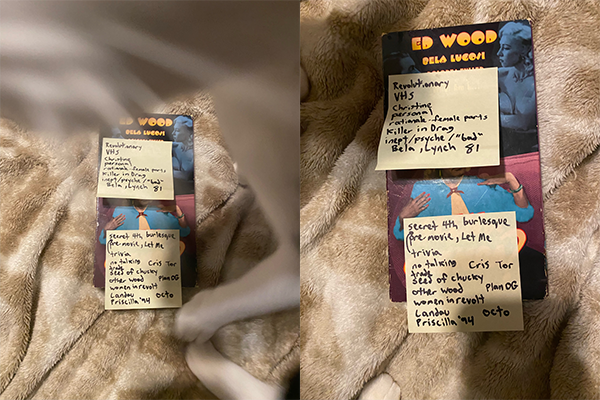 ED WOOD
BELA LUGOSI
Revolutionary
VHS
Christine
personal
rationale-female parts
Killer in Drag
inept/psyche/"bad"
Bela, Lynch 81
secret 4th, burlesque
pre-movie, Let Me
trivia
no talking Cris Tor
trade
seed of chucky
other wood Plan OG
women in revolt
Landau octo
Priscilla '94
ED WOOD
BELA LUGOSI
Revolutionary
VHS
Christine
personal
rationale-female parts
Killer in Drag
inept/psyche/"bad"
Bela, Lynch 81
secret 4th, burlesque
pre-movie, Let Me
trivia
no talking Cris Tor
trade
seed of chucky
other wood Plan OG
women in revolt
Landau octo
Priscilla '94